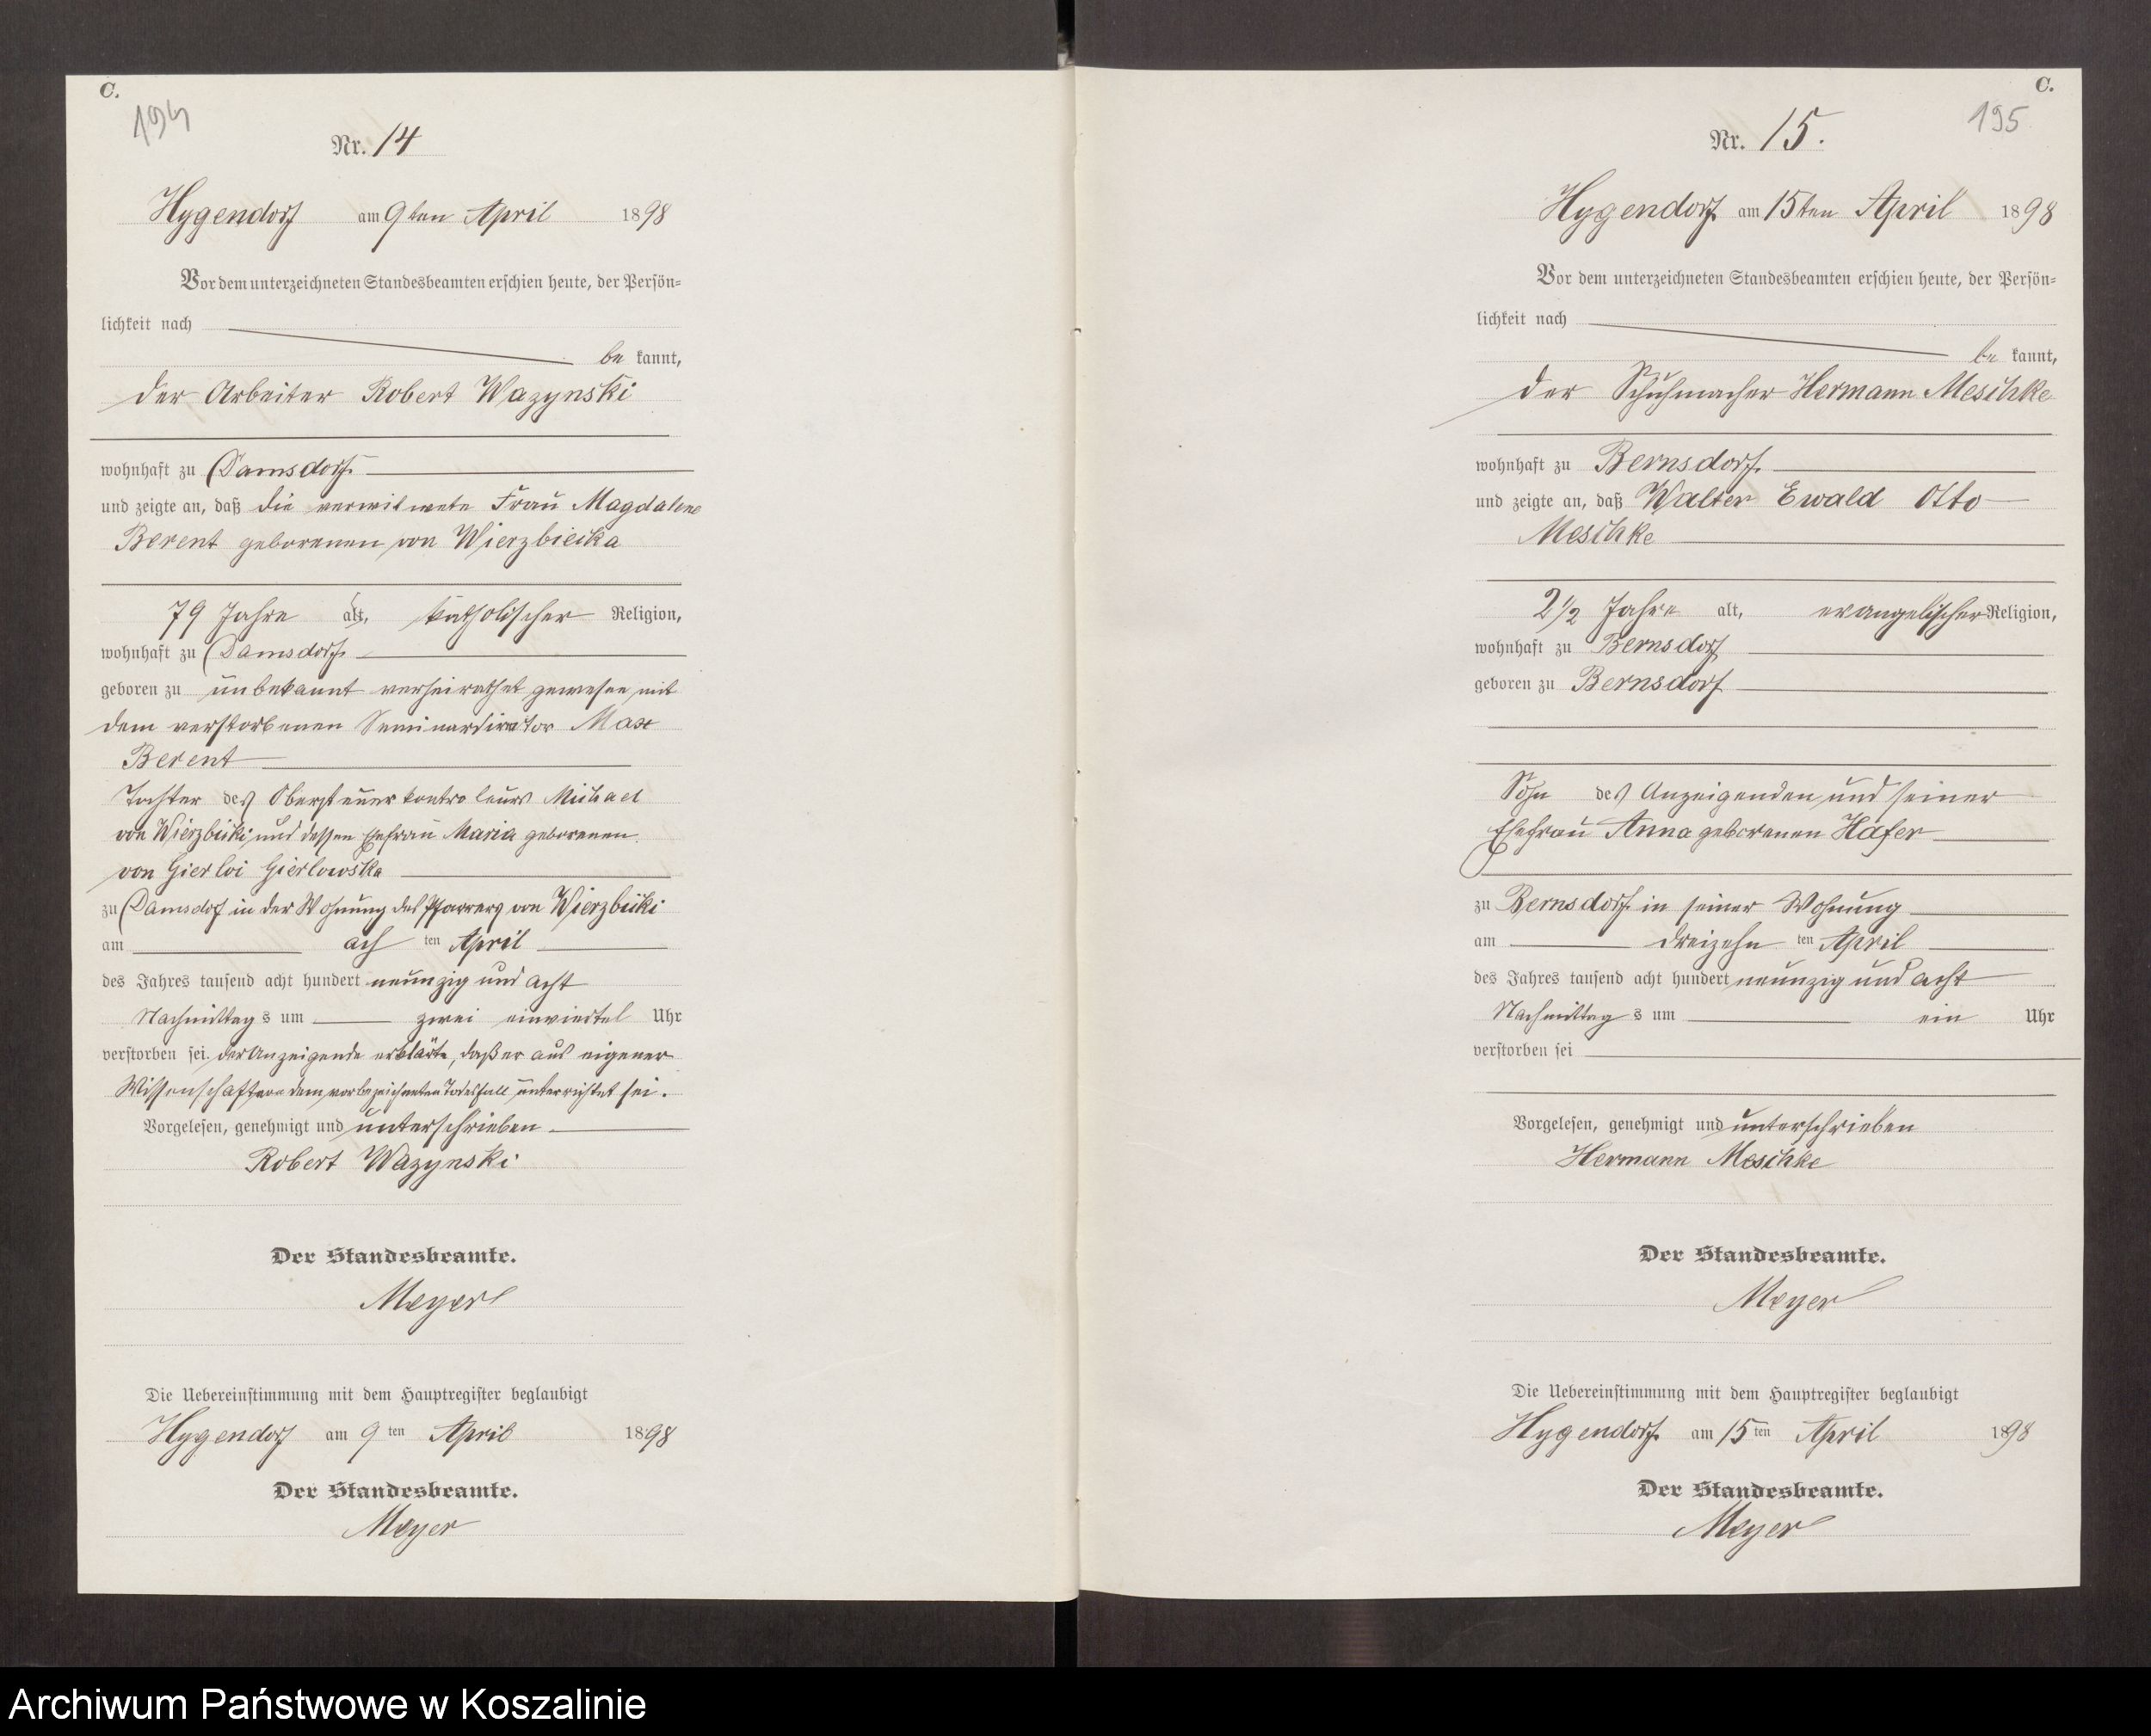 C.
194
Nr. 14
Hygendorf am 9ten April 1898
Vor dem unterzeichneten Standesbeamten erschien heute, der Persön=
lichkeit nach
be kannt,
der Arbeiter Robert Wazynski
wohnhaft zu Damsdorf
und zeigte an, daß die verwitwete Frau Magdalene
Berent geborenen von Wierzbicika
79 Jahre alt, katholischer Religion,
wohnhaft zu Damsdorf
geboren zu unbekannt verheirathet gewesen mit
dem verstorbenen Seminardirektor Max
Berent
Tochter des Obersteuerkontroleurs Michael
von Wierzbiki und dessen Ehefrau Maria geborenen
von Gierloi Gierlowska
zu Damsdorf in der Wohnung des Pfarrers von Wierzbiki
am ach ten April
des Jahres tausend acht hundert neunzig und acht
Nachmittag s um zwei einviertel Uhr
verstorben sei. der Anzeigende erklärte, daß er aus eigener
Wissenschaft von dem vorbezeichneten Todesfall unterrichtet sei.
Vorgelesen, genehmigt und unterschrieben
Robert Wazynski
Der Standesbeamte.
Meyer
Die Uebereinstimmung mit dem Hauptregister beglaubigt
Hygendorf am 9 ten April 1898
Der Standesbeamte.
Meyer
C.
195
Nr. 15.
Hygendorf am 15ten April 1898
Vor dem unterzeichneten Standesbeamten erschien heute, der Persön=
lichkeit nach
be kannt,
der Schuhmacher Hermann Meschke
wohnhaft zu Bernsdorf
und zeigte an, daß Walter Ewald Otto
Meschke
2 1/2 Jahre alt, evangelischer Religion,
wohnhaft zu Bernsdorf
geboren zu Bernsdorf
Sohn des Anzeigenden und seiner
Ehefrau Anna geborenen Hafer
zu Bernsdorf in seiner Wohnung
am dreizehn ten April
des Jahres tausend acht hundert neunzig und acht
Nachmittag s um ein Uhr
verstorben sei
Vorgelesen, genehmigt und unterschrieben
Hermann Meschke
Der Standesbeamte.
Meyer
Die Uebereinstimmung mit dem Hauptregister beglaubigt
Hygendorf am 15 ten April 1898
Der Standesbeamte.
Meyer
Archiwum Państwowe w Koszalinie